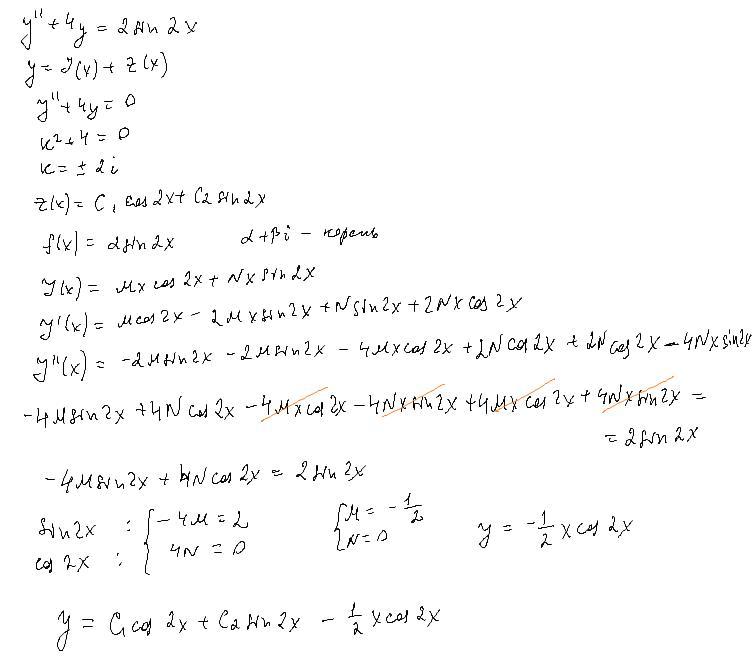 y'' + 4y = 2 sin 2x
y = Y(x) + Z(x)
y'' + 4y = 0
k² + 4 = 0
k = ± 2i
Z(x) = C₁ cos 2x + C₂ sin 2x
f(x) = 2 sin 2x α + βi - корень
Y(x) = Mx cos 2x + Nx sin 2x
Y'(x) = M cos 2x - 2Mx sin 2x + N sin 2x + 2Nx cos 2x
Y''(x) = -2M sin 2x - 2M sin 2x - 4Mx cos 2x + 2N cos 2x + 2N cos 2x - 4Nx sin 2x
-4M sin 2x + 4N cos 2x - 4Mx cos 2x - 4Nx sin 2x + 4Mx cos 2x + 4Nx sin 2x =
= 2 sin 2x
-4M sin 2x + 4N cos 2x = 2 sin 2x
sin 2x : { -4M = 2 { M = -1/2 y = -1/2 x cos 2x
cos 2x : 4N = 0 N = 0
y = C₁ cos 2x + C₂ sin 2x - 1/2 x cos 2x